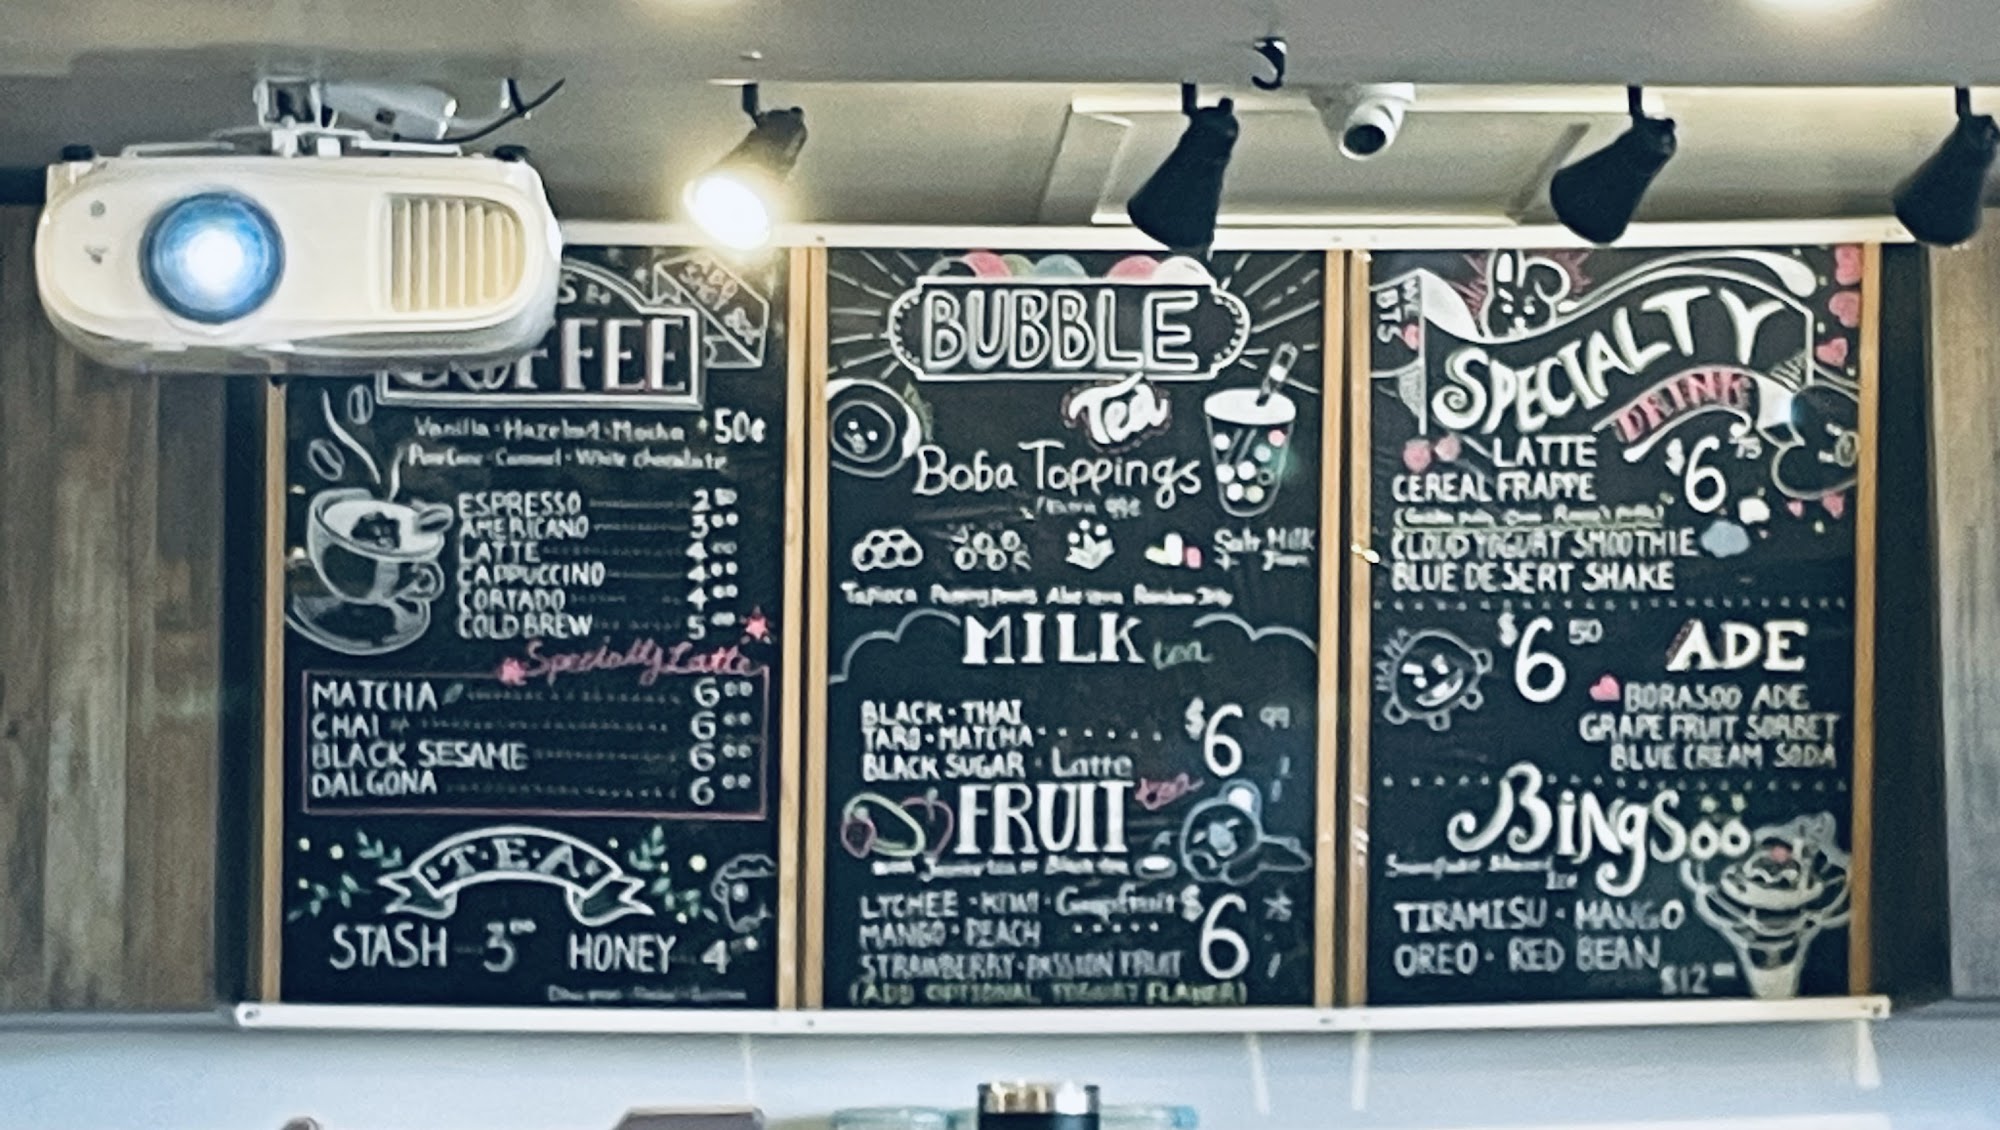 COFFEE
Vanilla · Hazelnut · Mocha 50¢
Caramel · White chocolate
ESPRESSO 2 50
AMERICANO 3 00
LATTE 4 00
CAPPUCCINO 4 00
CORTADO 4 00
COLD BREW 5 00
Specialty Latte
MATCHA 6 00
CHAI 6 00
BLACK SESAME 6 00
DALGONA 6 00
T·E·A
STASH 3 00 HONEY 4
BUBBLE
Tea
Boba Toppings
Extra 99¢
Salt Milk
Foam
Tapioca Popping pearls Aloe vera Rainbow Jelly
MILK tea
BLACK · THAI
TARO · MATCHA $6 99
BLACK SUGAR · Latte
FRUIT tea
LYCHEE · KIWI · Grapefruit $6
MANGO · PEACH
STRAWBERRY · PASSION FRUIT
(ADD OPTIONAL YOGURT FLAVOR)
WE
BTS
SPECIALTY
DRINK
LATTE $6 75
CEREAL FRAPPE
CLOUD YOGURT SMOOTHIE
BLUE DESERT SHAKE
HAHA
$6 50 ADE
BORASOO ADE
GRAPE FRUIT SORBET
BLUE CREAM SODA
BiNgSoo
Snowflake Shaved
Ice
TIRAMISU · MANGO
OREO · RED BEAN
$12